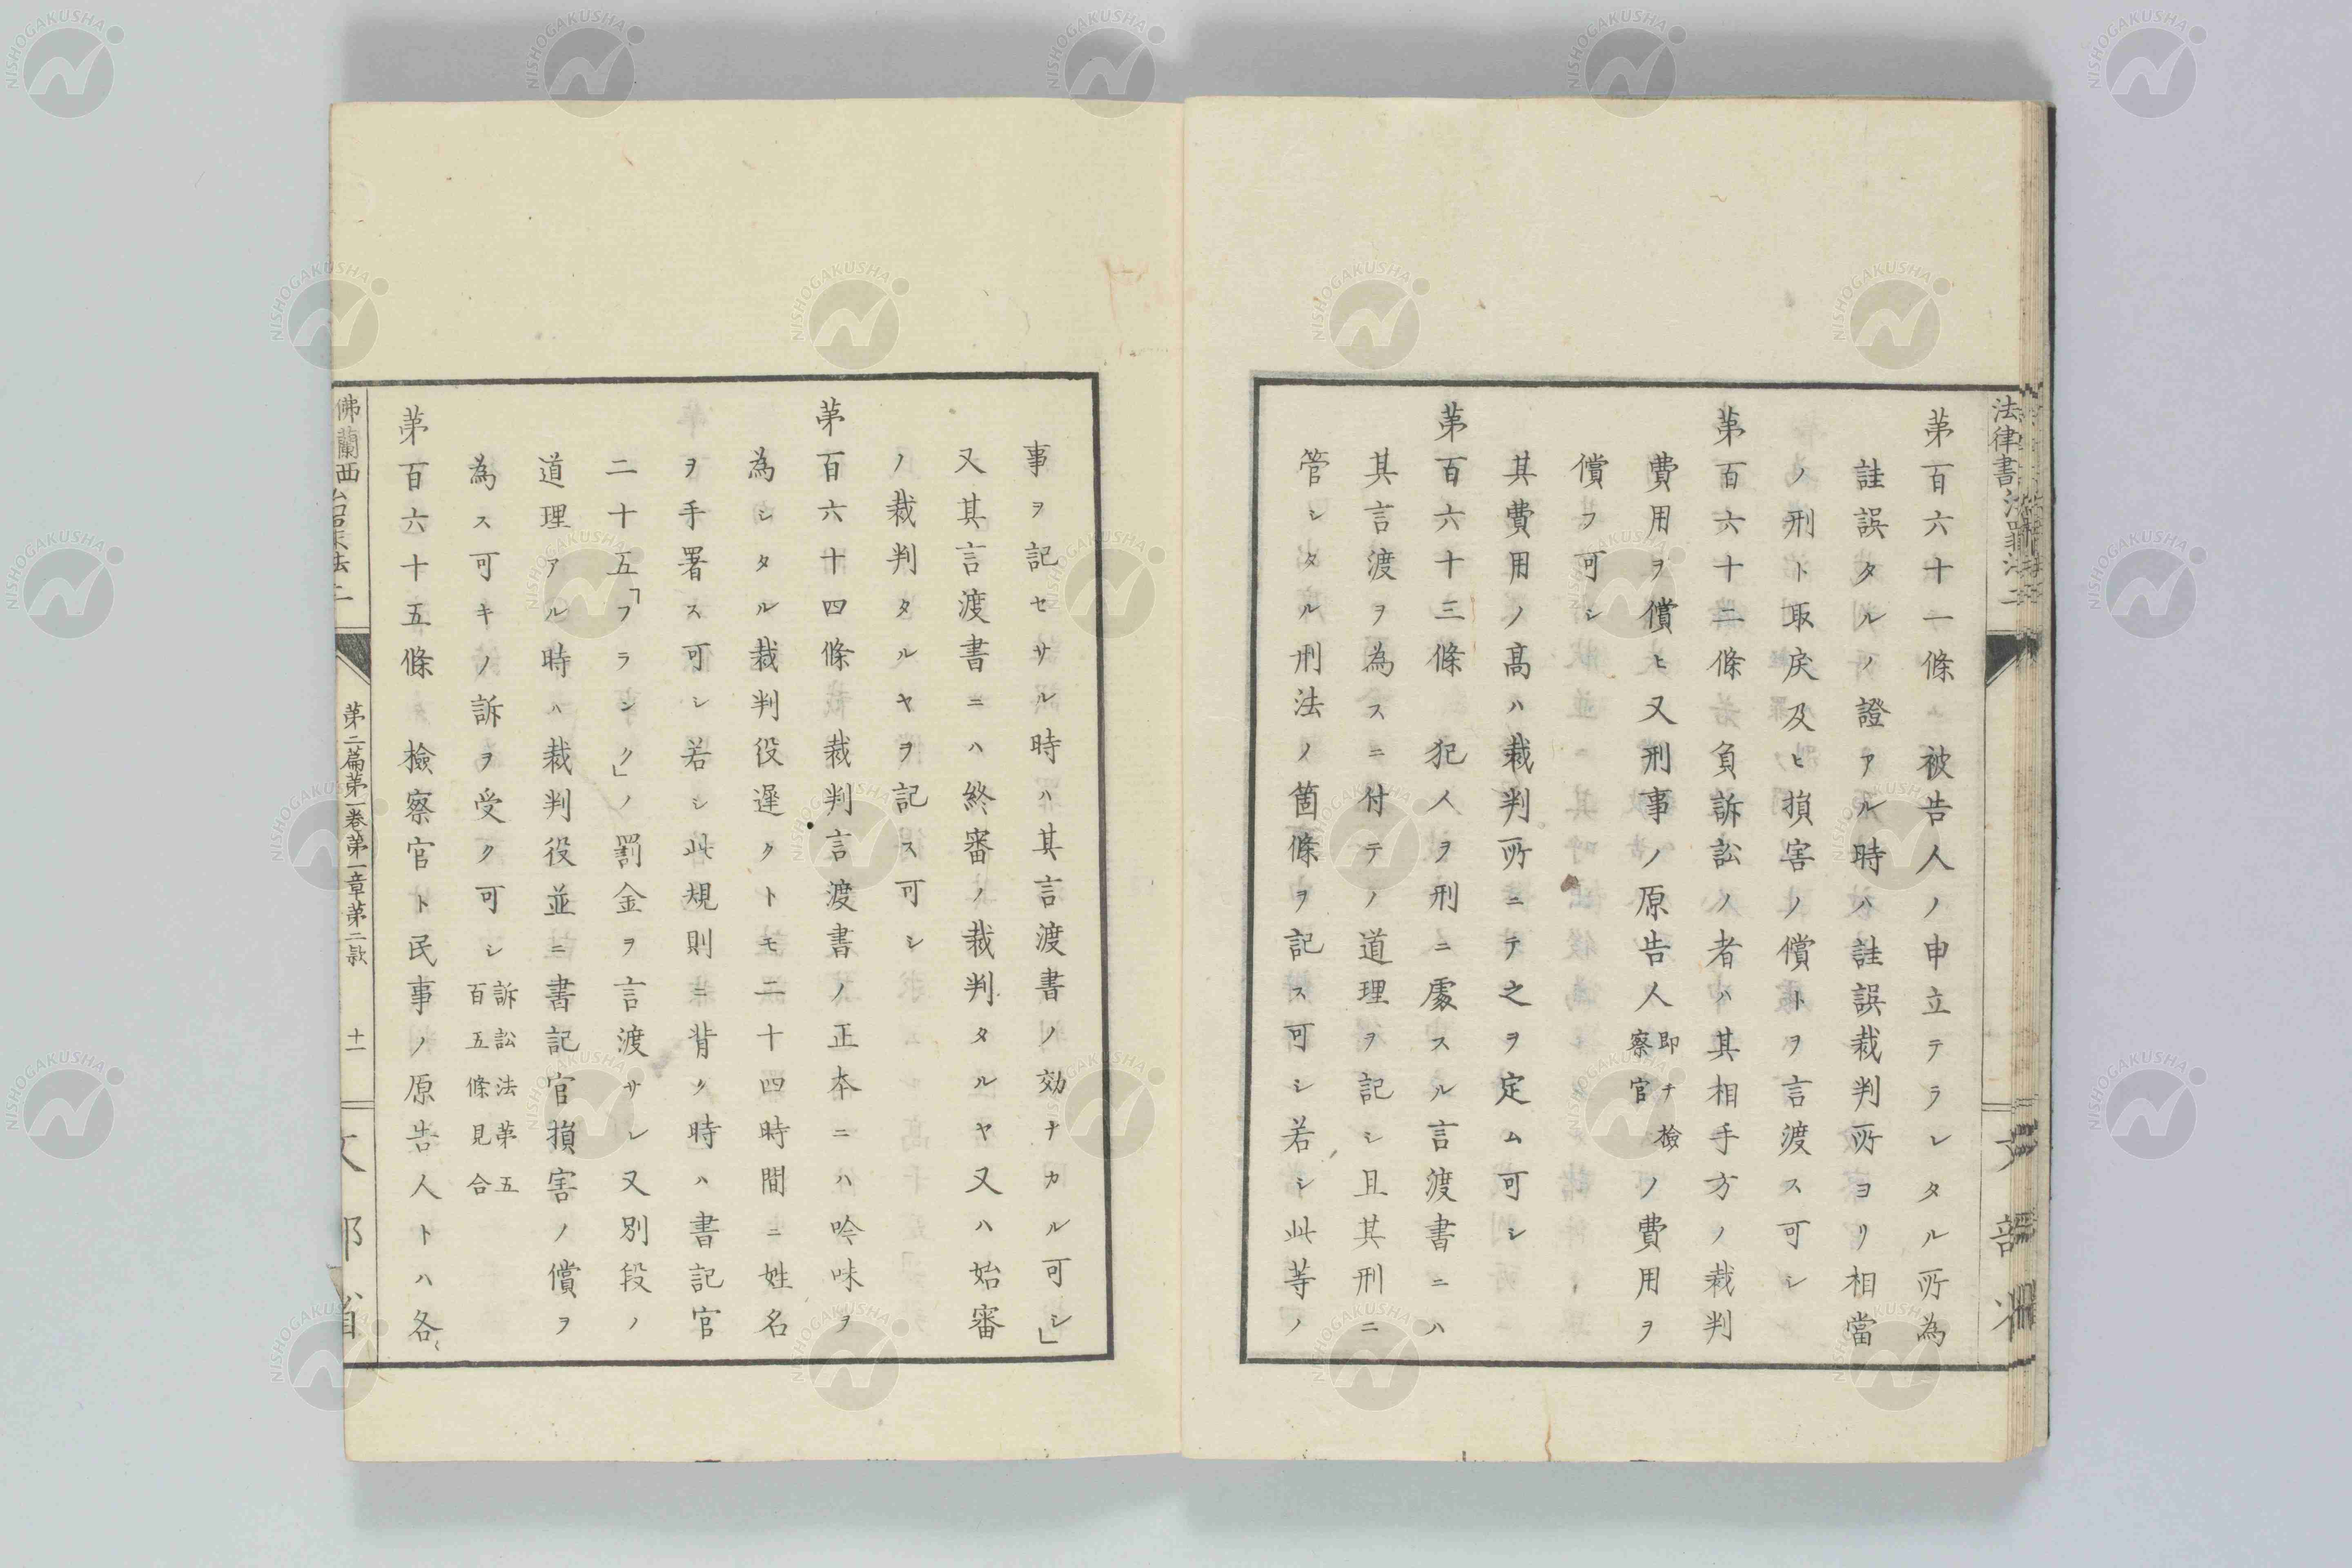 第百六十一條　被告人ノ申立テラレタル所為
註誤タルノ證アル時ハ註誤裁判所ヨリ相當
ノ刑ト取戻及ヒ損害ノ償トヲ言渡ス可シ
第百六十二條　負訴訟ノ者ハ其相手方ノ裁判
費用ヲ償ヒ又刑事ノ原告人即チ檢察官ノ費用ヲ
償フ可シ
其費用ノ高ハ裁判所ニテ之ヲ定ム可シ
第百六十三條　犯人ヲ刑ニ處スル言渡書ニハ
其言渡ヲ為スニ付テノ道理ヲ記シ且其刑ニ
管シタル刑法ノ箇條ヲ記ス可シ若シ此等ノ
事ヲ記セサル時ハ其言渡書ノ効ナカル可シ」
又其言渡書ニハ終審ノ裁判タルヤ又ハ始審
ノ裁判タルヤヲ記ス可シ
第百六十四條　裁判言渡書ノ正本ニハ吟味ヲ
為シタル裁判役遅クトモ二十四時間ニ姓名
ヲ手署ス可シ若シ此規則ニ背ク時ハ書記官
二十五「フランク」ノ罰金ヲ言渡サレ又別段ノ
道理アル時ハ裁判役並ニ書記官損害ノ償ヲ
為ス可キノ訴ヲ受ク可シ訴訟法第五百五條見合
第百六十五條　檢察官ト民事ノ原告人トハ各〻
佛蘭西治罪法二
第二篇第一巻第一章第二款
十一
文部省
NISHOGAKUSHA